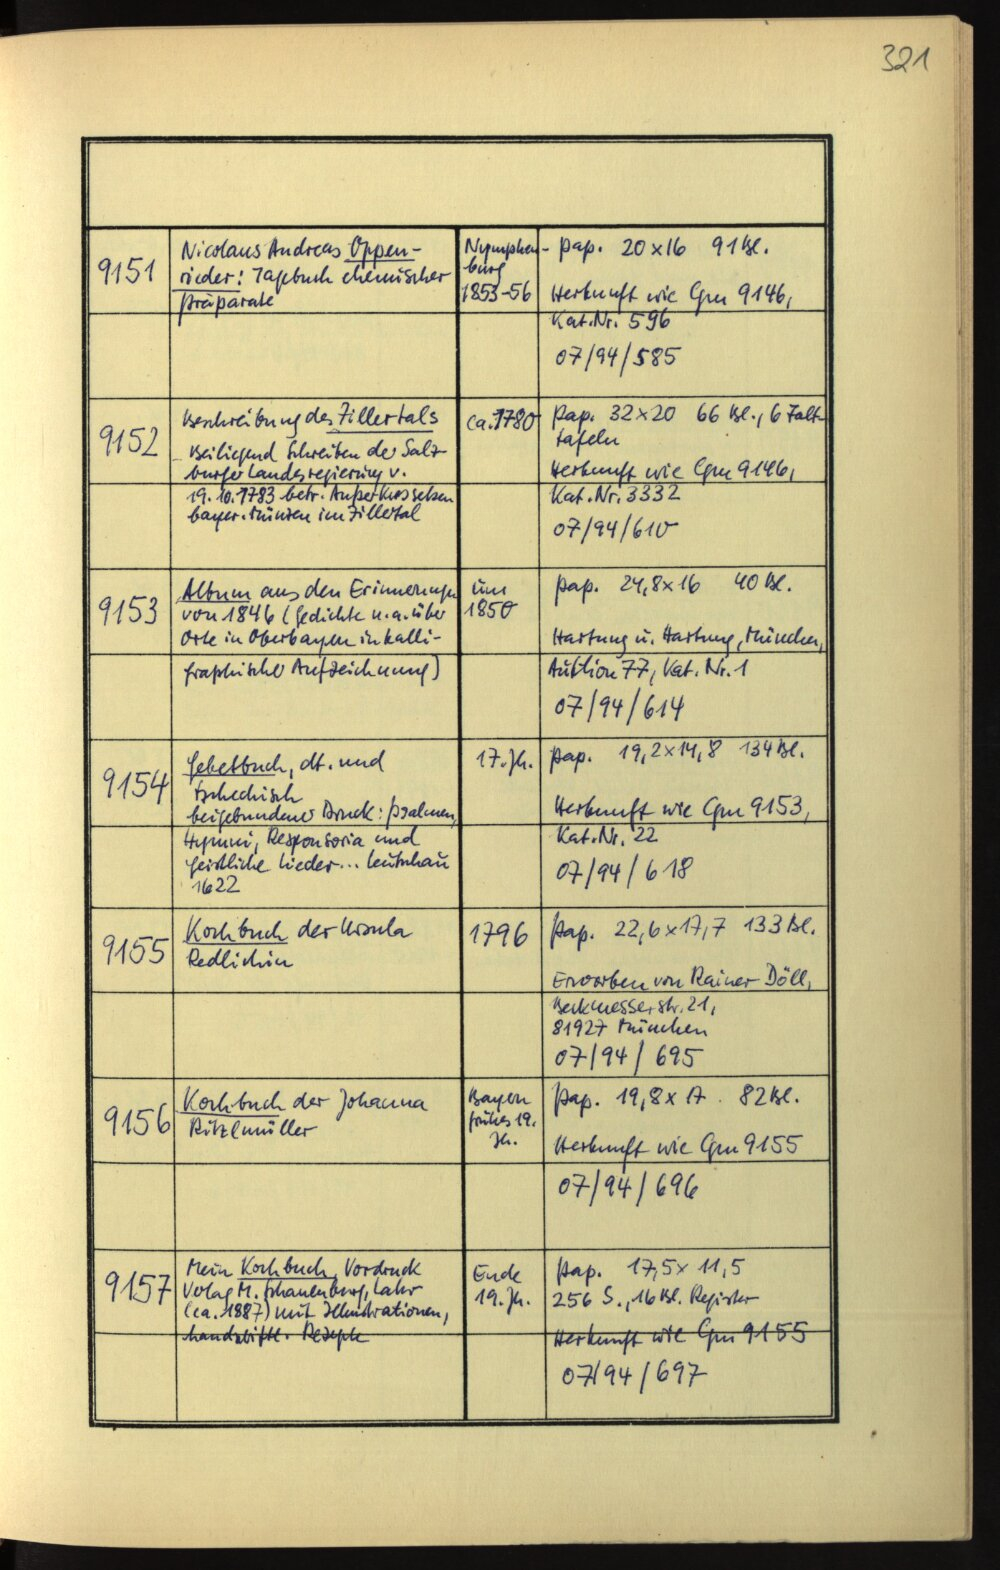 321
9151
Nicolaus Andreas Oppen-
rieder: Tagebuch chemischer
Präparate
Nymphen-
burg
1853-56
Pap. 20 x 16 91 Bl.
Herkunft wie Cgm 9146,
Kat.Nr. 596
07/94/585
9152
Beschreibung des Zillertals
Beiliegend Schreiben der Salz-
burger Landesregierung v.
19.10.1783 betr. Außerkurssetzen
bayer. Münzen im Zillertal
ca. 1780
Pap. 32 x 20 66 Bl., 6 Falt-
tafeln
Herkunft wie Cgm 9146,
Kat.Nr. 3332
07/94/610
9153
Album aus den Erinnerungen
von 1846 (Gedichte u.a. über
Orte in Oberbayern in kalli-
graphischer Aufzeichnung)
um
1850
Pap. 24,8 x 16 40 Bl.
Hartung u. Hartung, München,
Auktion 77, Kat.Nr. 1
07/94/614
9154
Gebetbuch, dt. und
tschechisch
beigebundener Druck: Psalmen,
Hymni, Responsoria und
geistliche Lieder... Leutschau
1622
17. Jh.
Pap. 19,2 x 14,8 134 Bl.
Herkunft wie Cgm 9153,
Kat.Nr. 22
07/94/618
9155
Kochbuch der Ursula
Redlichin
1796
Pap. 22,6 x 17,7 133 Bl.
Erworben von Rainer Döll,
Beckmesserstr. 21,
81927 München
07/94/695
9156
Kochbuch der Johanna
Ritzlmüller
Bayern
frühes 19.
Jh.
Pap. 19,8 x 17. 82 Bl.
Herkunft wie Cgm 9155
07/94/696
9157
Mein Kochbuch, Vordruck
Verlag M. Schauenburg, Lahr
(ca. 1887) mit Illustrationen,
handschriftl. Rezepte
Ende
19. Jh.
Pap. 17,5 x 11,5
256 S., 16 Bl. Register
Herkunft wie Cgm 9155
07/94/697